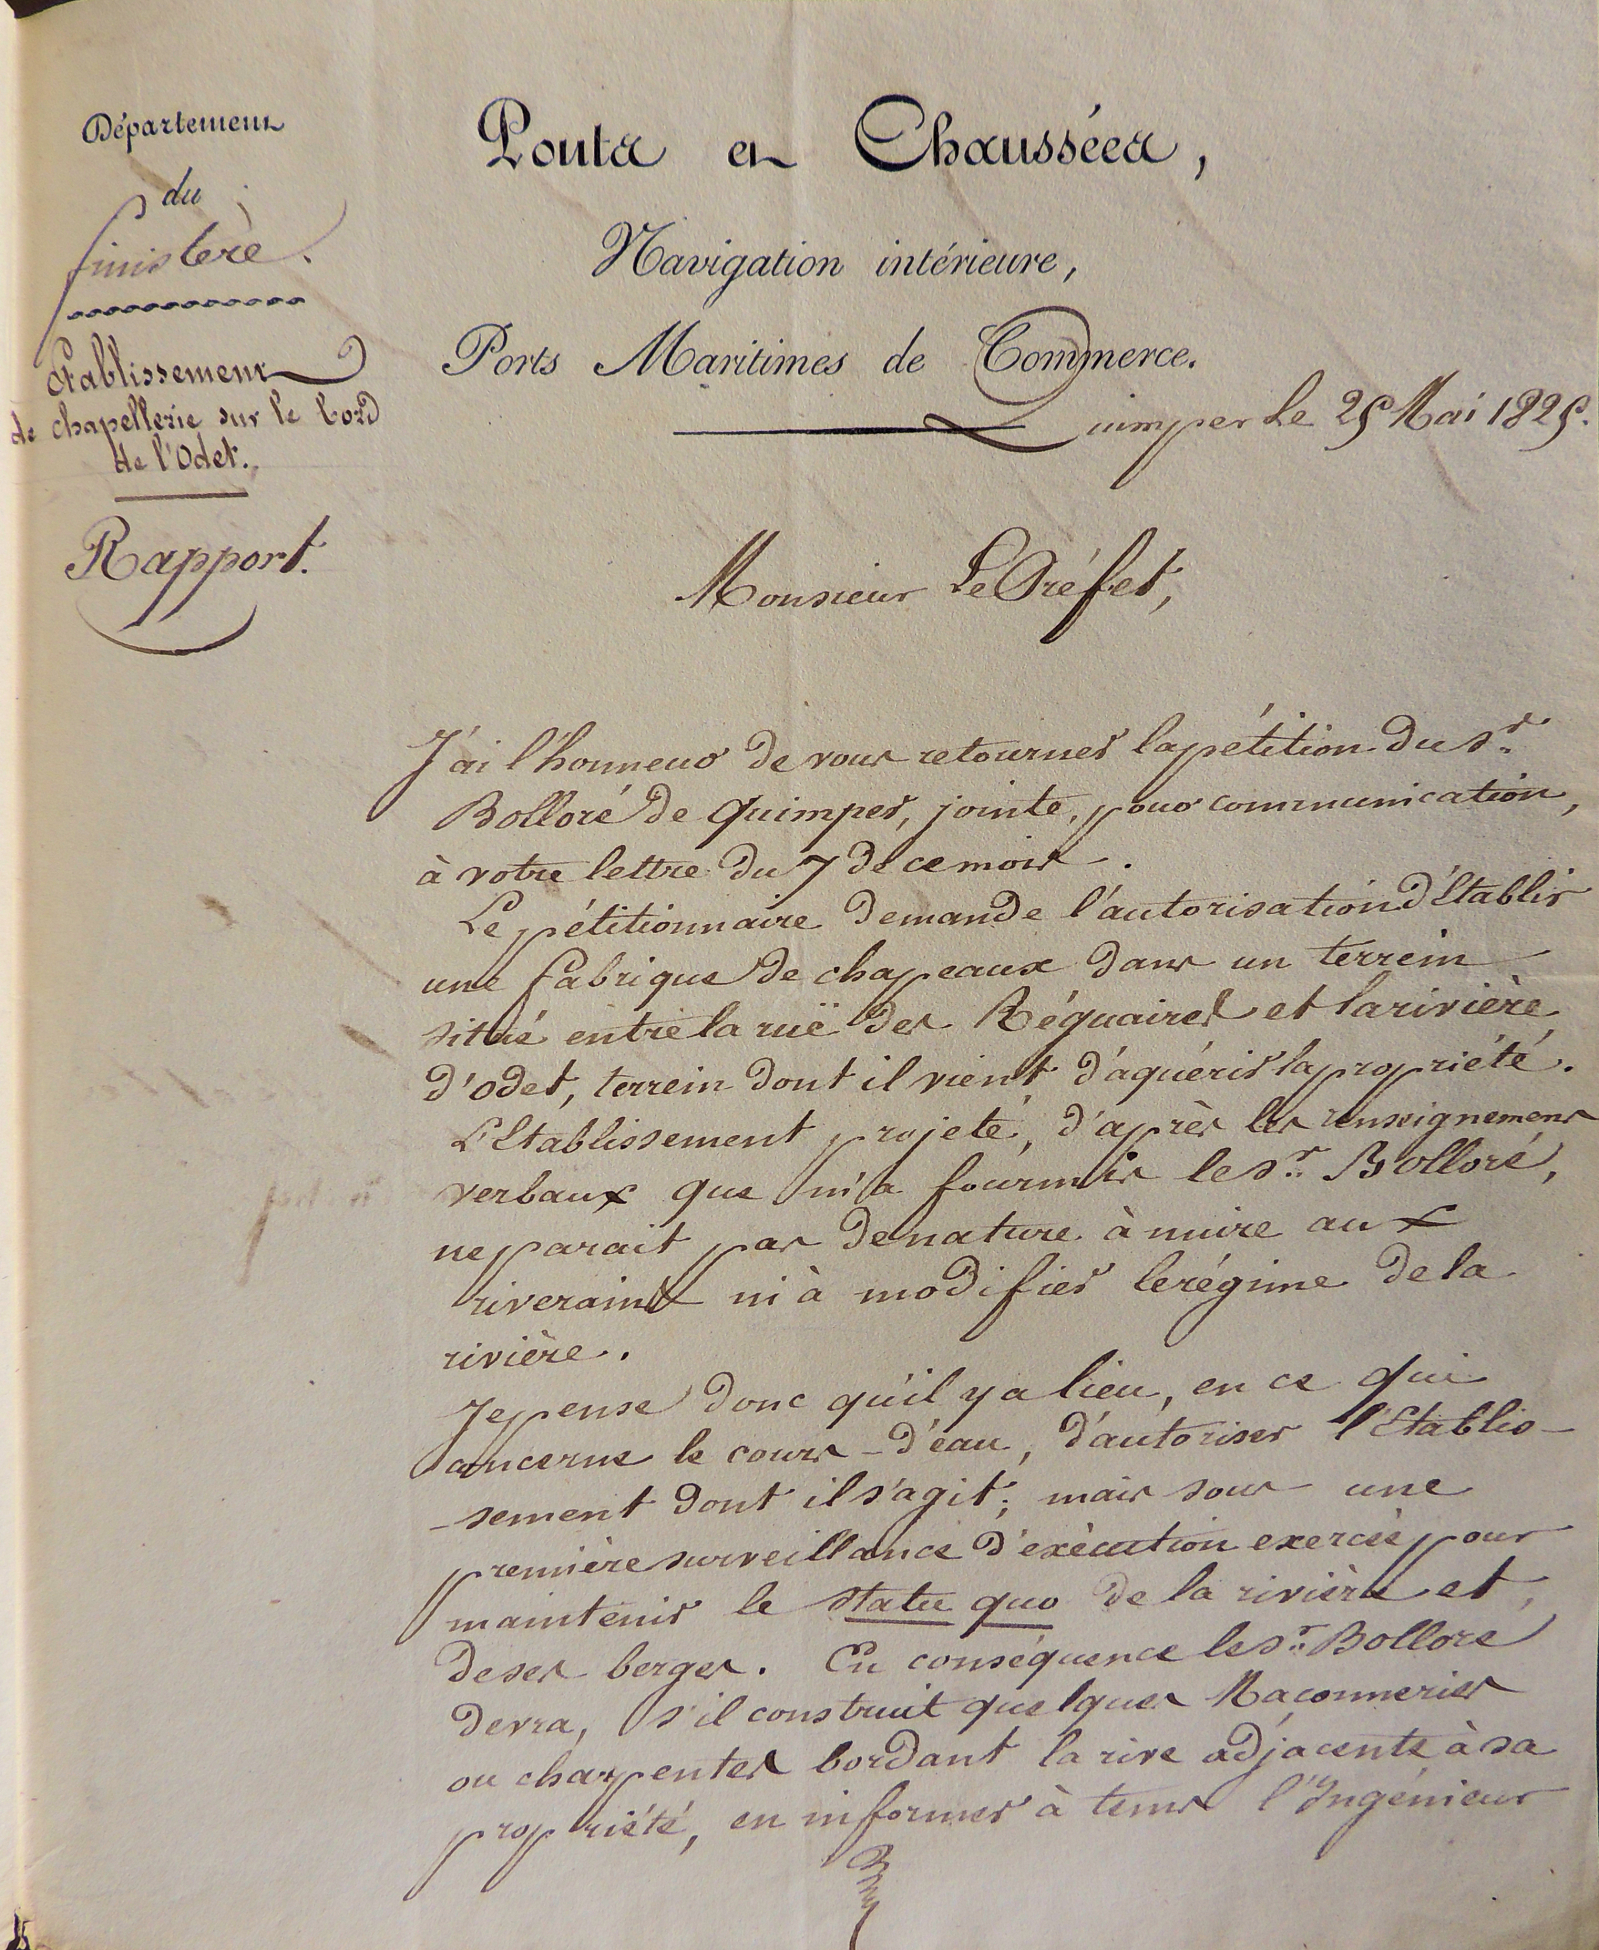 Département
du
finistère.
Etablissement
de chapellerie sur le bord
de l'Odet.
Rapport.
Ponts et Chaussées,
Navigation intérieure,
Ports Maritimes de Commerce.
Quimper Le 25 Mai 1825.
Monsieur Le Préfet,
J'ai l'honneur de vous retourner la pétition du Sr.
Bolloré de Quimper, jointe, pour communication,
à votre lettre du 7 de ce mois.
Le pétitionnaire demande l'autorisation d'Etablir
une fabrique de chapeaux dans un terrein
situé entre la ruë des Réguaires et la rivière
d'odet, terrein dont il vient d'aquérir la propriété.
L'Etablissement projeté, d'après les renseignemens
verbaux que m'a fournis le Sr. Bolloré,
ne parait pas de nature à nuire aux
riverains ni à modifier le régime de la
rivière.
Je pense donc qu'il y a lieu, en ce qui
concerne le cours-d'eau, d'autoriser l'Etablis-
-sement dont il s'agit; mais sous une
première surveillance d'exècution exercée pour
maintenir le statu quo de la rivière et,
de ses berges. En conséquence le Sr. Bolloré
devra, s'il construit quelques Maçonneries
ou charpentes bordant la rive adjacente à sa
propriété, en informer à tems l'Ingénieur